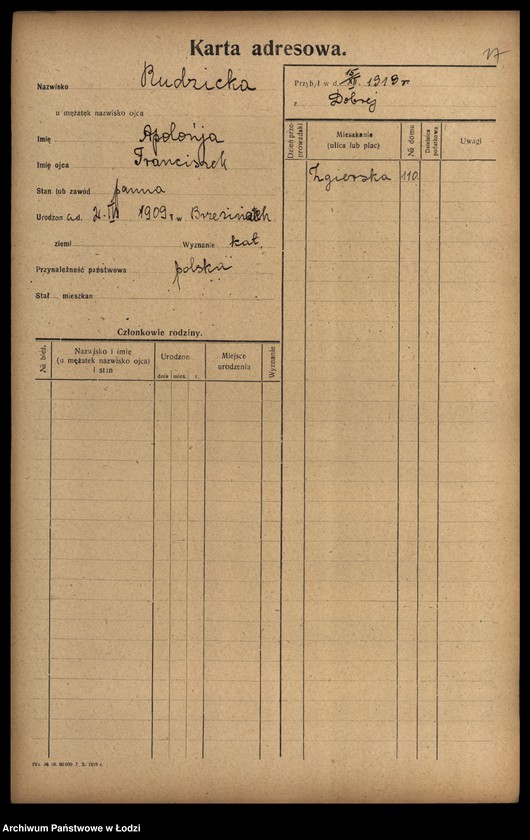 Karta adresowa.
17
Nazwisko Rudzicka
u mężatek nazwisko ojca
Imię Apolonja
Imię ojca Franciszek
Stan lub zawód panna
Urodzon w d. 1909 r. w Brzezinach
ziemi Wyznanie kat.
Przynależność państwowa polska
Stał mieszkan
Przybył w d. 15/XII. 1919 r
z Dobrej
Dzień przeprowadzki
Mieszkanie
(ulica lub plac)
№ domu
Dzielnica podatkowa
Uwagi
Zgierska 110.
Członkowie rodziny.
№ bież.
Nazwisko i imię
(u mężatek nazwisko ojca)
i stan
Urodzon
dnia mies. r.
Miejsce
urodzenia
Wyznanie
Archiwum Państwowe w Łodzi